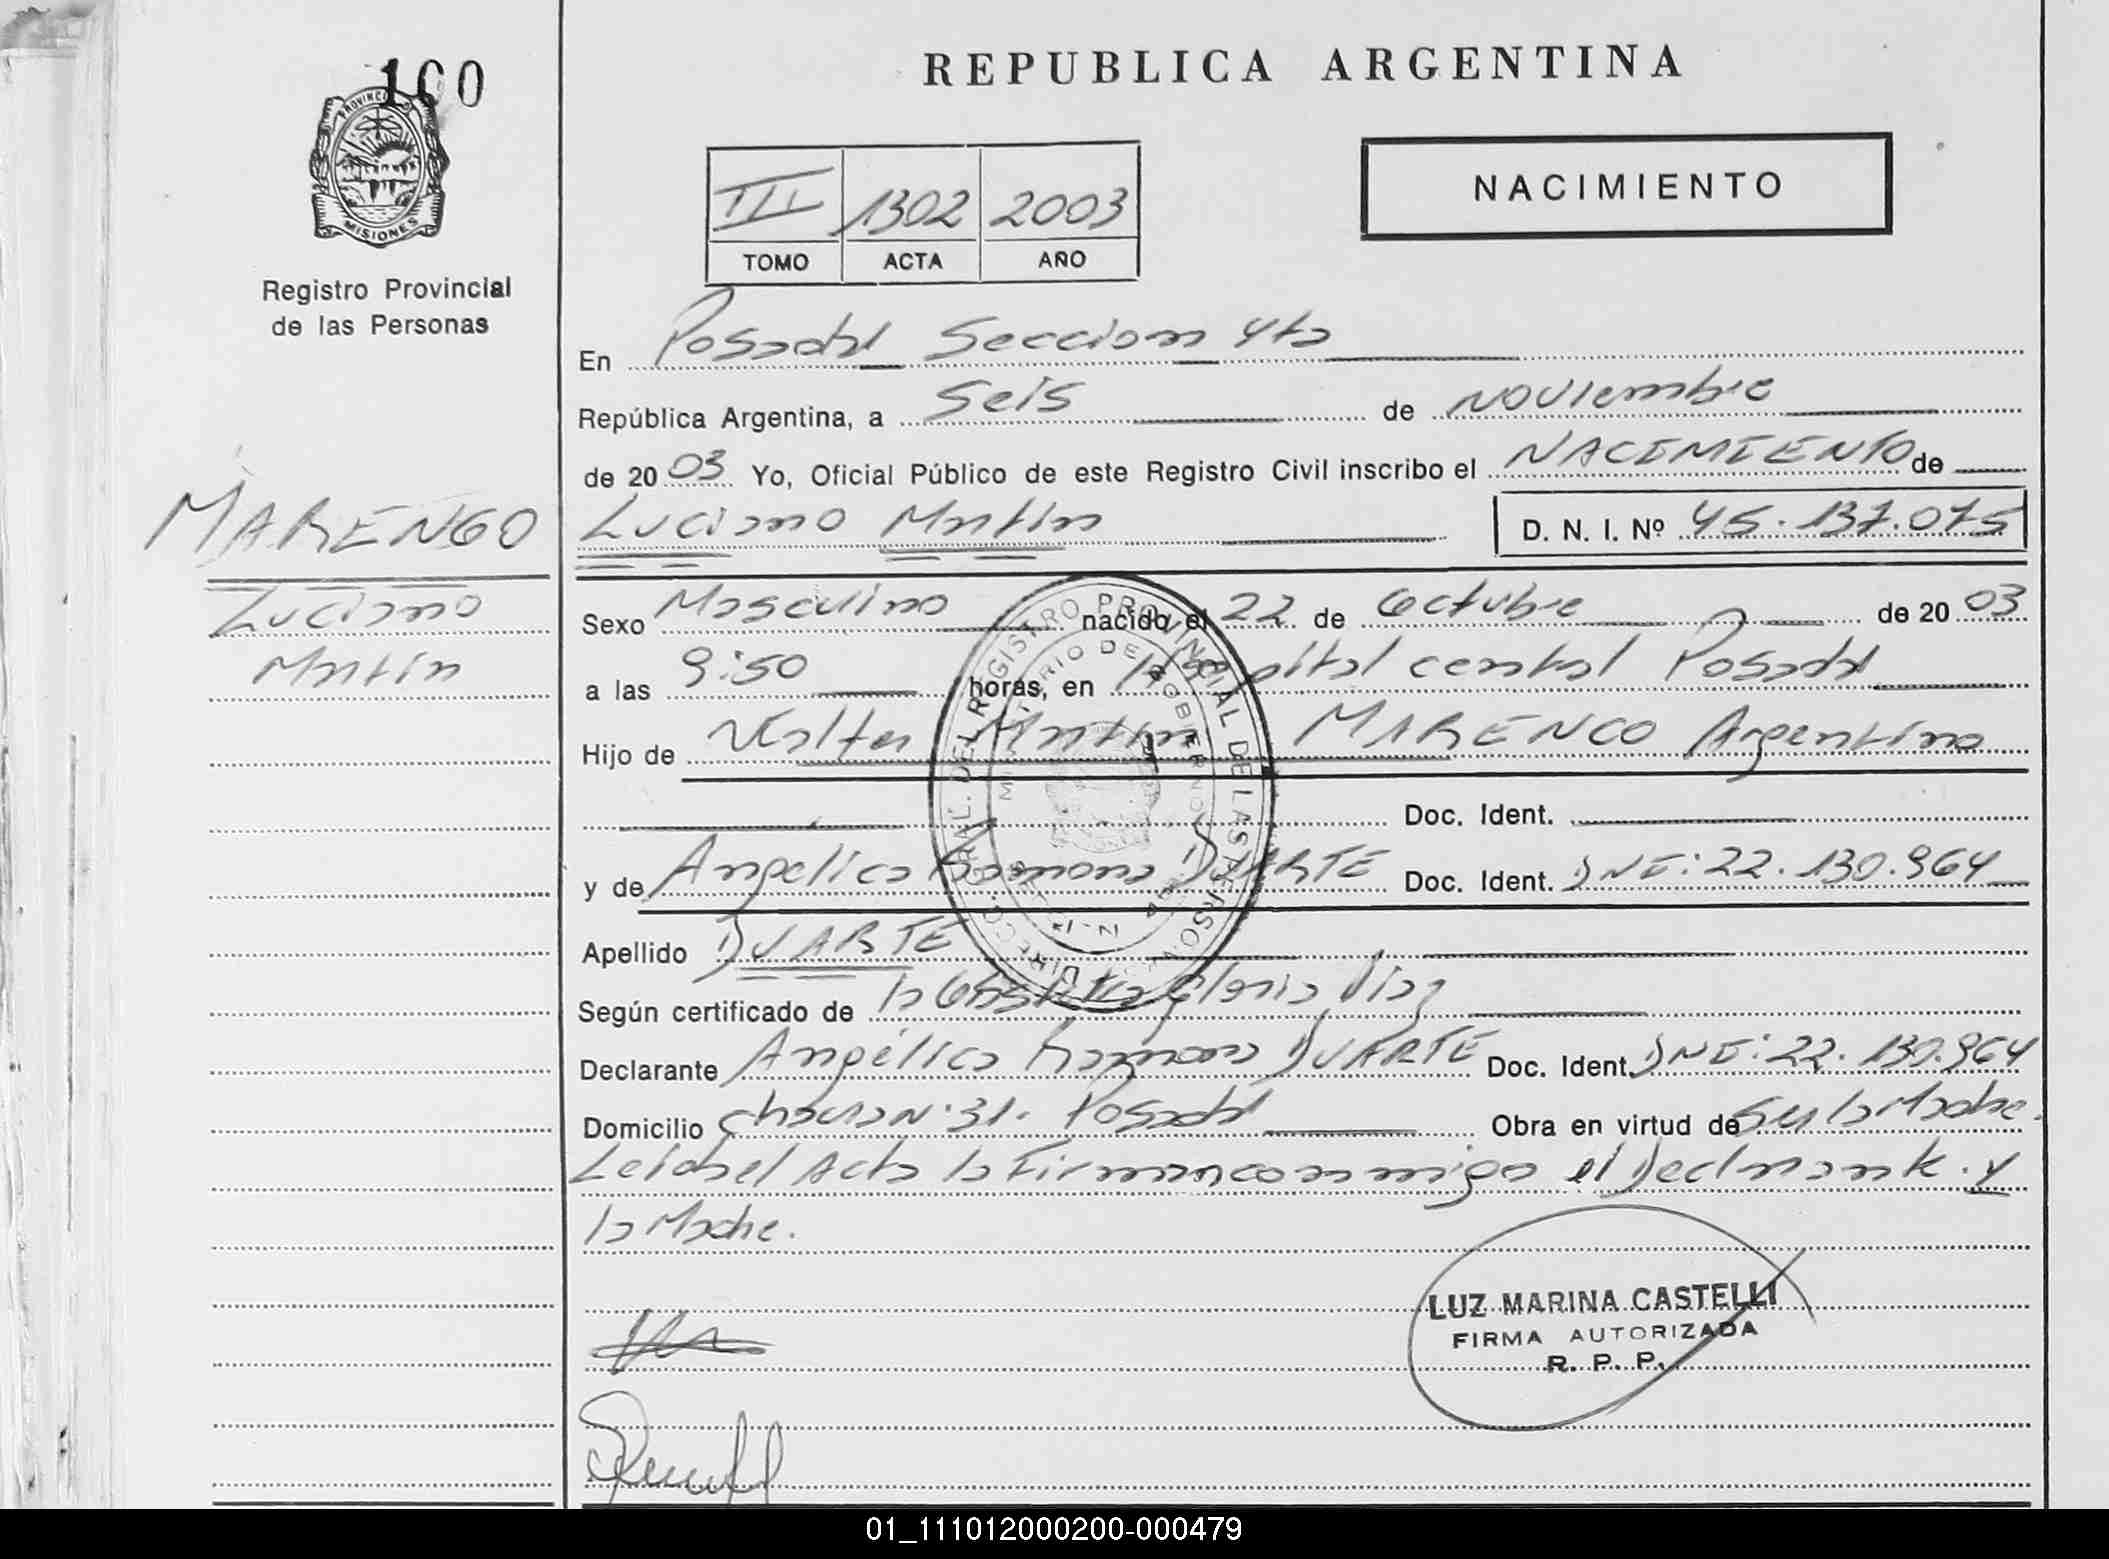 100
PROVINCIA DE
MISIONES
Registro Provincial
de las Personas
MARENGO
Luciano
Martín
REPUBLICA ARGENTINA
III 1302 2003
TOMO ACTA AÑO
NACIMIENTO
En Posadas Seccion 4ta
República Argentina, a Seis de noviembre
de 2003 Yo, Oficial Público de este Registro Civil inscribo el NACIMIENTO de
Luciano Martín D. N. I. Nº 45.137.075
Sexo Masculino nacido el 22 de Octubre de 2003
a las 9:50 horas, en Hospital central Posadas
Hijo de Walter Martin MARENCO Argentino
Doc. Ident.
y de Angelica Ramona DUARTE Doc. Ident. DNI: 22.130.964
Apellido DUARTE
Según certificado de la Obstetra Gloria Diaz
Declarante Angélica Ramona DUARTE Doc. Ident. DNI: 22.130.964
Domicilio N: 31. Posadas Obra en virtud de Ser la Madre.
Leida el Acta la Firman conmigo el Declarante. y
la Madre.
LUZ MARINA CASTELLI
FIRMA AUTORIZADA
R. P. P.
DIRECC. GRAL. DEL REGISTRO PROVINCIAL DE LAS PERSONAS
MINISTERIO DE GOBIERNO
01_111012000200-000479